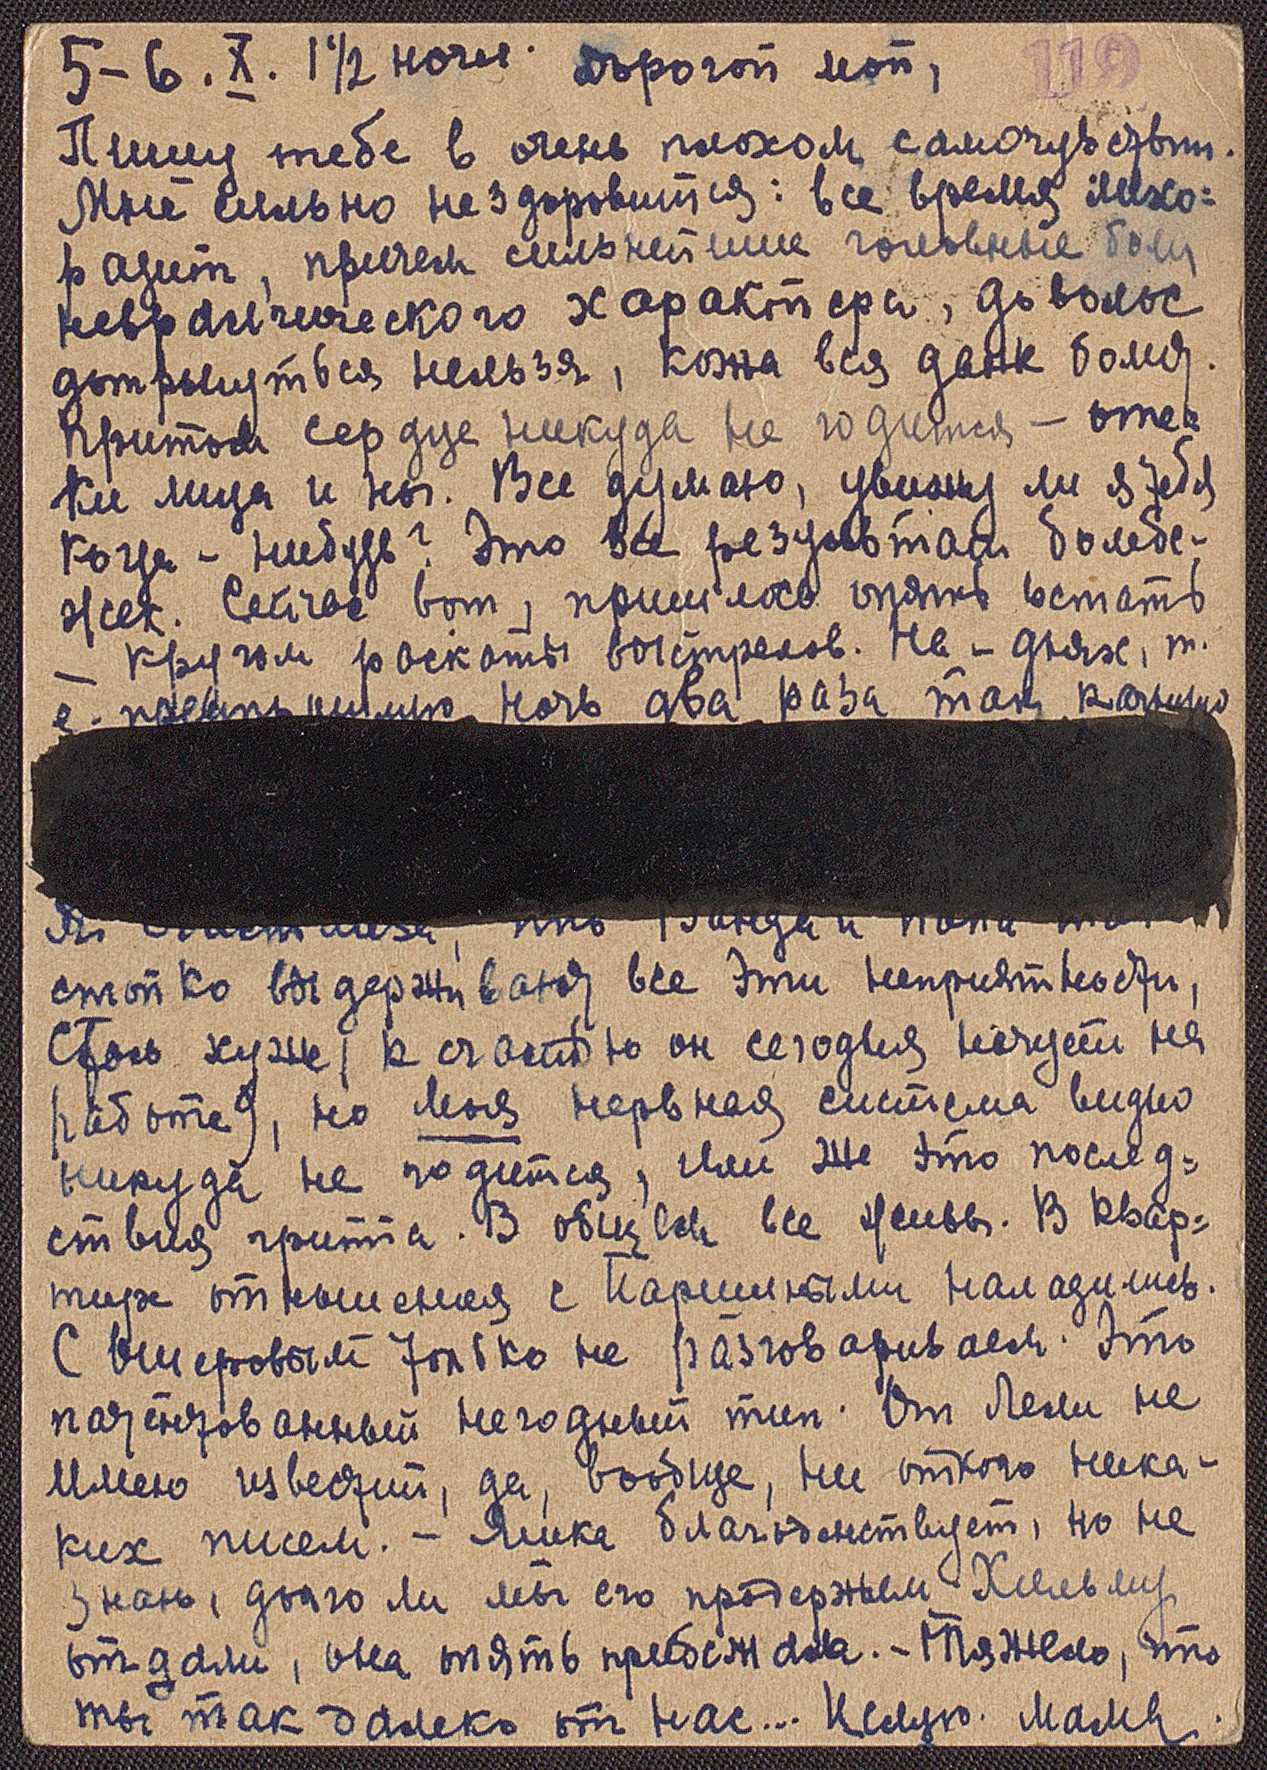 5-6. X. 1 1/2 ночи. Дорогой мой,
119
Пишу тебе в очень плохом самочувствии.
Мне сильно нездоровится: все время лихо=
радит, причем сильнейшие головные боли
невралгического характера, до волос
дотронуться нельзя, кожа вся даже болит.
Притом сердце никуда не годится – оте=
ки лица и ног. Все думаю, увижу ли я тебя
когда-нибудь? Это все результаты бомбе-
жек. Сейчас вот, пришлось опять встать
– кругом раскаты выстрелов. На-днях, т.
е. ночь два раза так
что Ванда и папа так
стойко выдерживают все эти неприятности,
хуже, к счастью он сегодня ночует на
работе), но моя нервная система видно
никуда не годится, или же это послед=
ствия гриппа. В общем все живы. В квар=
тире отношения с наладились.
С только не разговариваем. Это
патентованный негодный тип. От Лели не
имею известий, да, вообще, ни от кого ника-
ких писем. – Яшка благоденствует, но не
знаю, долго ли мы его продержим. Хильму
отдали, она опять прибежала. – Тяжело, что
ты так далеко от нас... Целую. Мама.